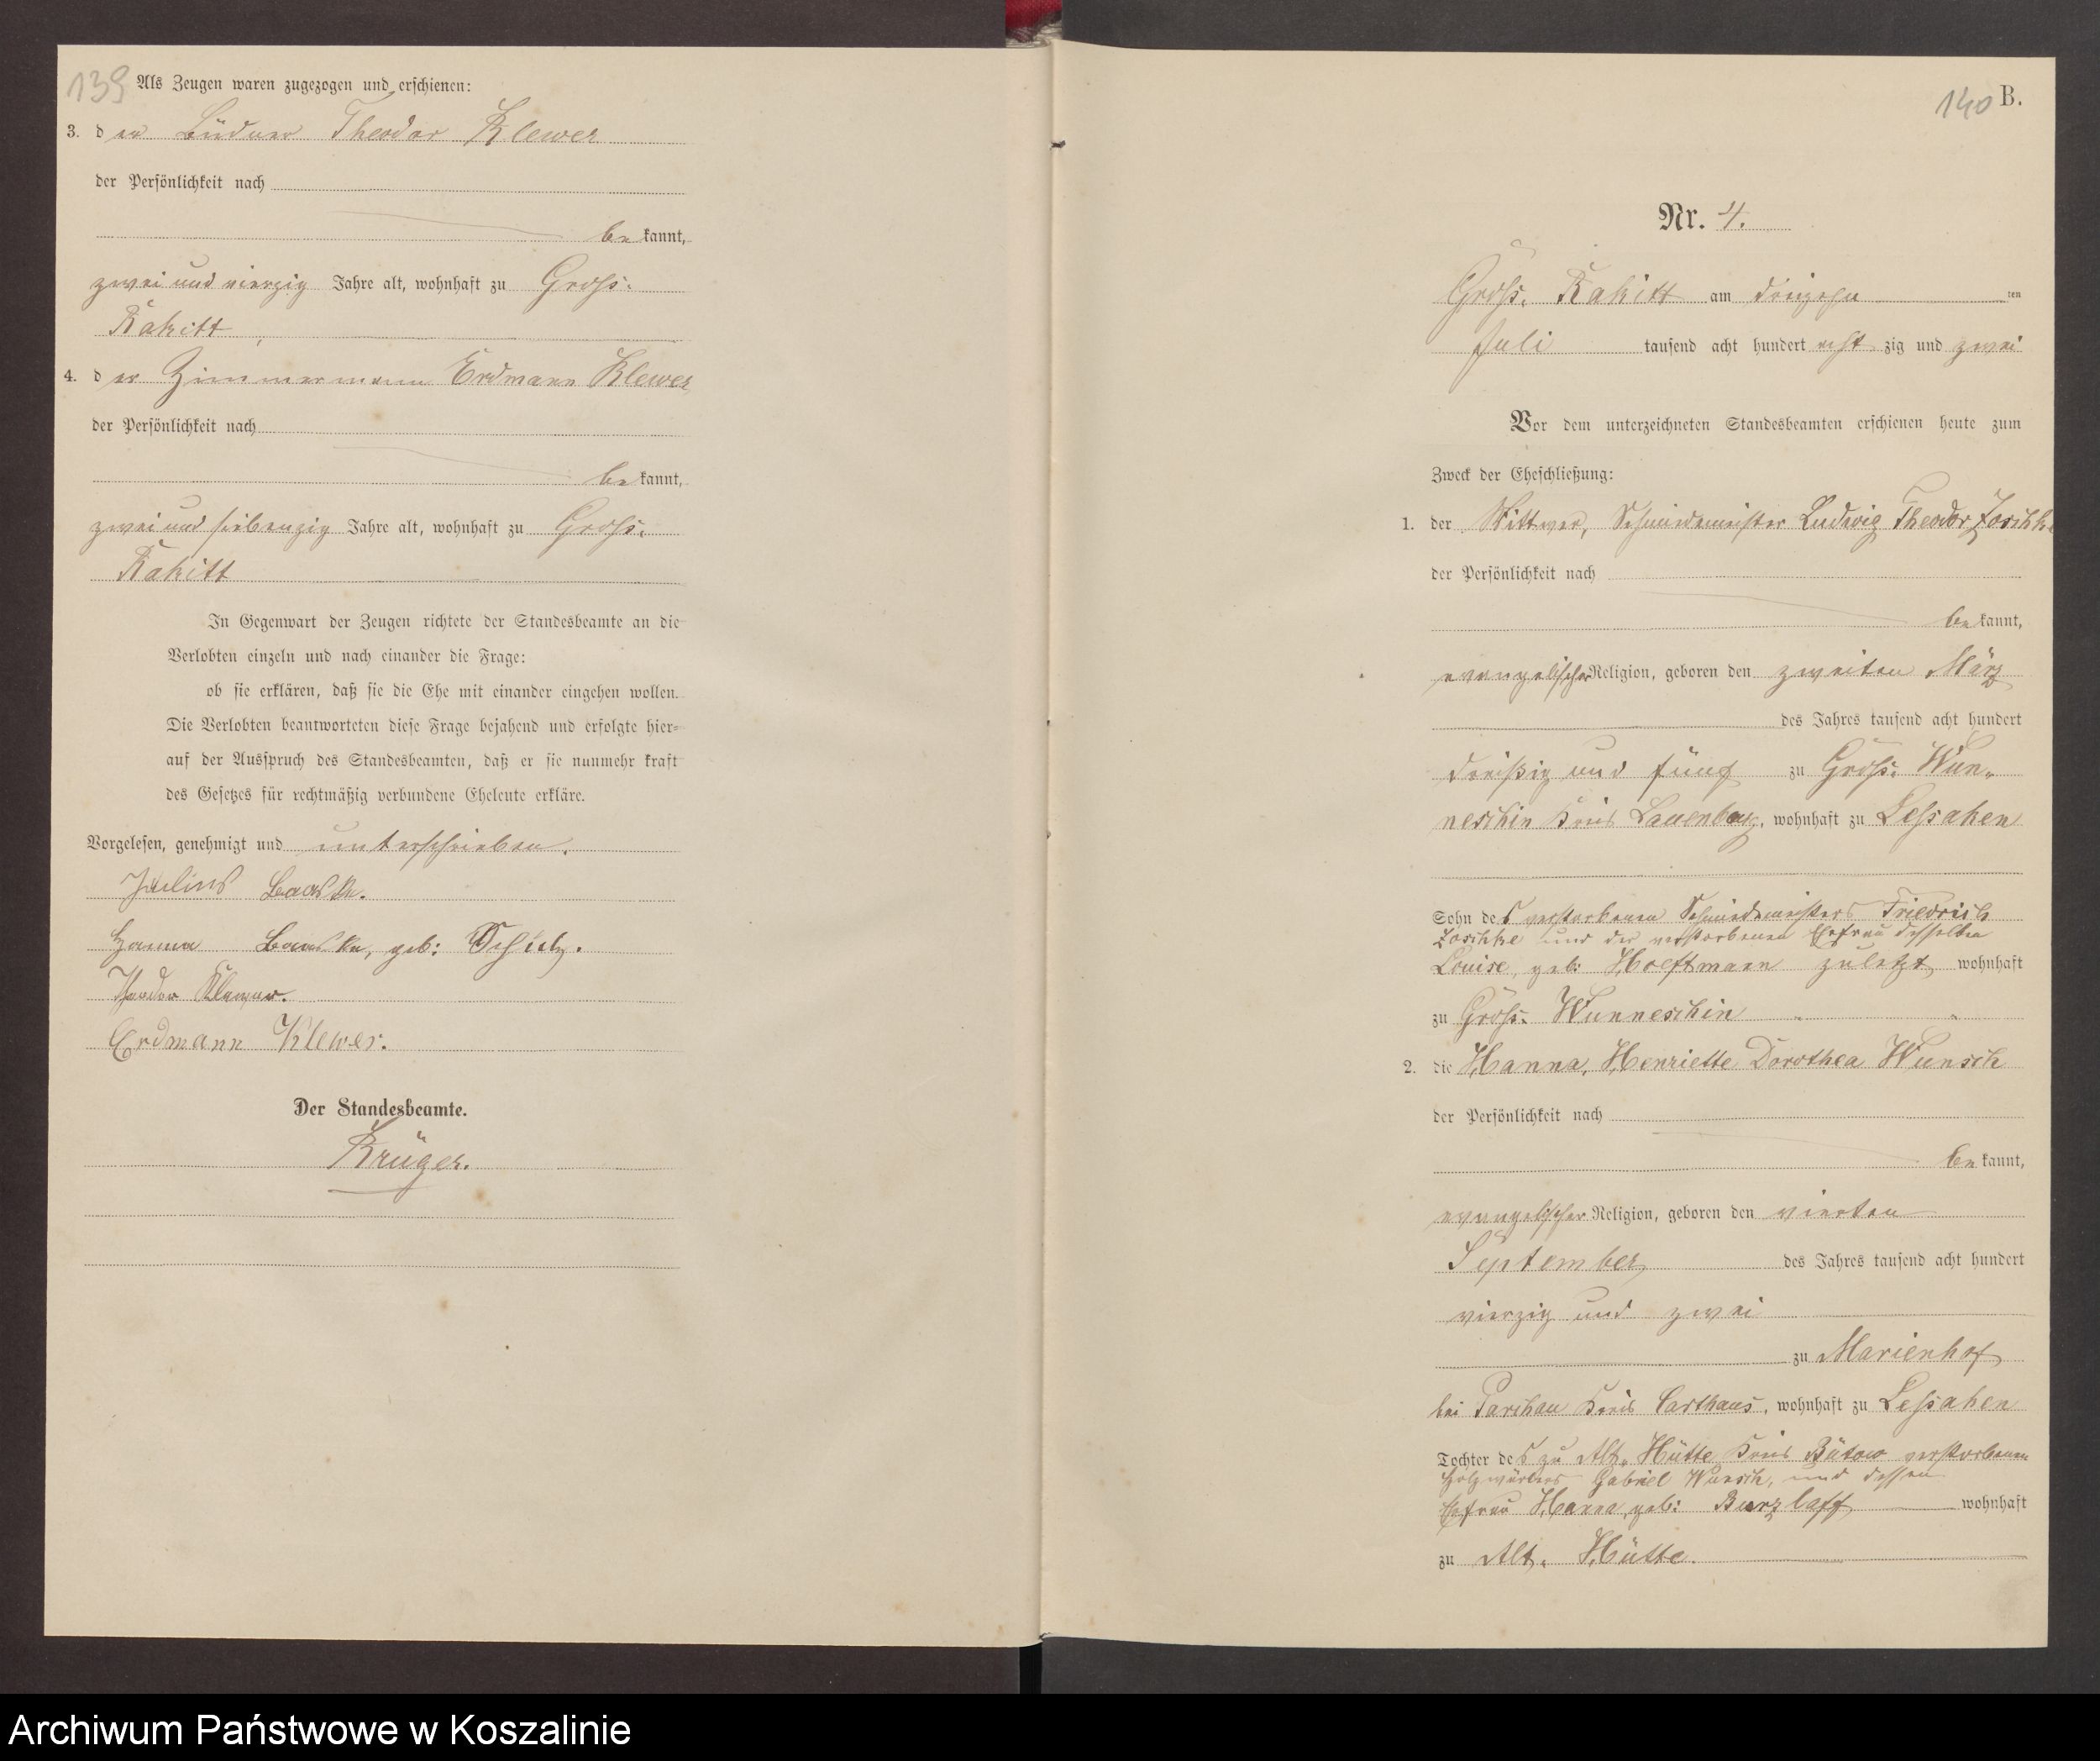 139
Als Zeugen waren zugezogen und erschienen:
3. der Büdner Theodor Klewer
der Persönlichkeit nach
bekannt,
zwei und vierzig Jahre alt, wohnhaft zu Groß-
Rakitt,
4. der Zimmermann Erdmann Klewer
der Persönlichkeit nach
bekannt,
zwei und siebenzig Jahre alt, wohnhaft zu Groß-
Rakitt
In Gegenwart der Zeugen richtete der Standesbeamte an die
Verlobten einzeln und nach einander die Frage:
ob sie erklären, daß sie die Ehe mit einander eingehen wollen.
Die Verlobten beantworteten diese Frage bejahend und erfolgte hier-
auf der Ausspruch des Standesbeamten, daß er sie nunmehr kraft
des Gesetzes für rechtmäßig verbundene Eheleute erkläre.
Vorgelesen, genehmigt und unterschrieben.
Julius Baaske.
Hanna Baaske, geb: Schulz.
Theodor Klewer.
Erdmann Klewer.
Der Standesbeamte.
Krüger.
140 B.
Nr. 4.
Groß-Rakitt am dreizehnten
Juli tausend acht hundert achtzig und zwei
Vor dem unterzeichneten Standesbeamten erschienen heute zum
Zweck der Eheschließung:
1. der Wittwer, Schmiedemeister Ludwig Theodor Zoschke
der Persönlichkeit nach
bekannt,
evangelischer Religion, geboren den zweiten März
des Jahres tausend acht hundert
dreißig und fünf zu Groß-Wun-
neschin Kreis Lauenburg, wohnhaft zu Lessaken
Sohn des verstorbenen Schmiedemeisters Friedrich
Zoschke und der verstorbenen Ehefrau desselben
Louise, geb: Hoeftmann zuletzt wohnhaft
zu Groß-Wunneschin
2. die Hanna, Henriette Dorothea Wunsch
der Persönlichkeit nach
bekannt,
evangelischer Religion, geboren den vierten
September des Jahres tausend acht hundert
vierzig und zwei
zu Marienhof
bei Parchau Kreis Carthaus, wohnhaft zu Lessaken
Tochter des zu Alt-Hütte Kreis Bütow verstorbenen
Holzwärters Gabriel Wunsch, und dessen
Ehefrau Hanna, geb: Burzlaff wohnhaft
zu Alt-Hütte.
Archiwum Państwowe w Koszalinie